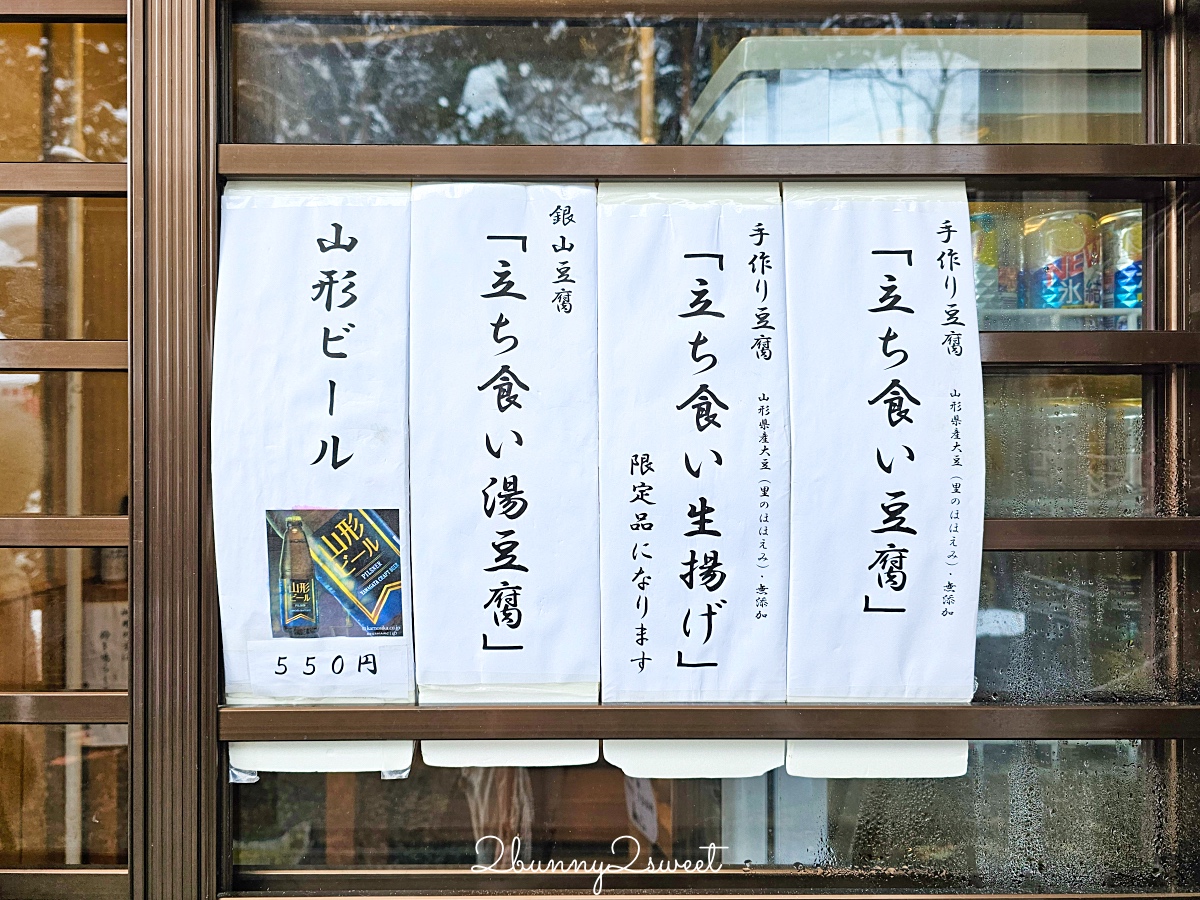 手作り豆腐　山形県産大豆（里のほほえみ）・無添加
「立ち食い豆腐」
手作り豆腐　山形県産大豆（里のほほえみ）・無添加
「立ち食い生揚げ」
限定品になります
銀山豆腐
「立ち食い湯豆腐」
山形ビール
山形
ビール
PILSNER
山形
ビール
５５０円
NEW
氷結
2bunny2sweet